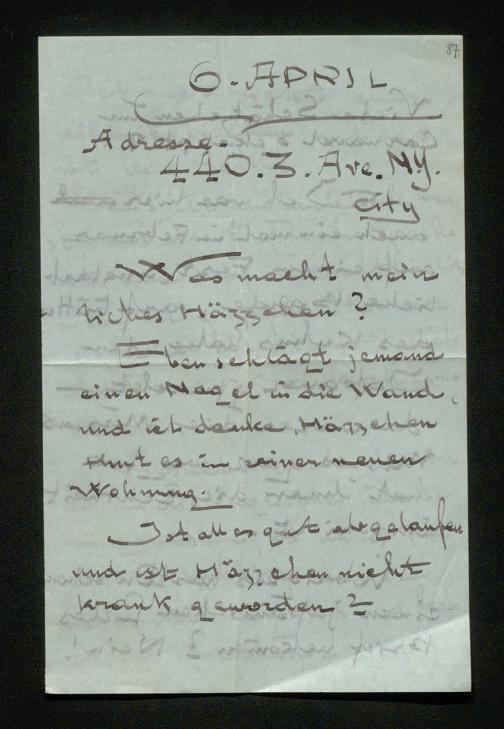 87
6. APRIL
Adresse.
440. 3. Ave. N.Y.
City
Was macht mein
liebes Häzzchen?
Eben schlägt jemand
einen Nagel in die Wand,
und ich denke, Häzzchen
thut es in seiner neuen
Wohnung.
Ist alles gut abgelaufen
und ist Häzzchen nicht
krank geworden?